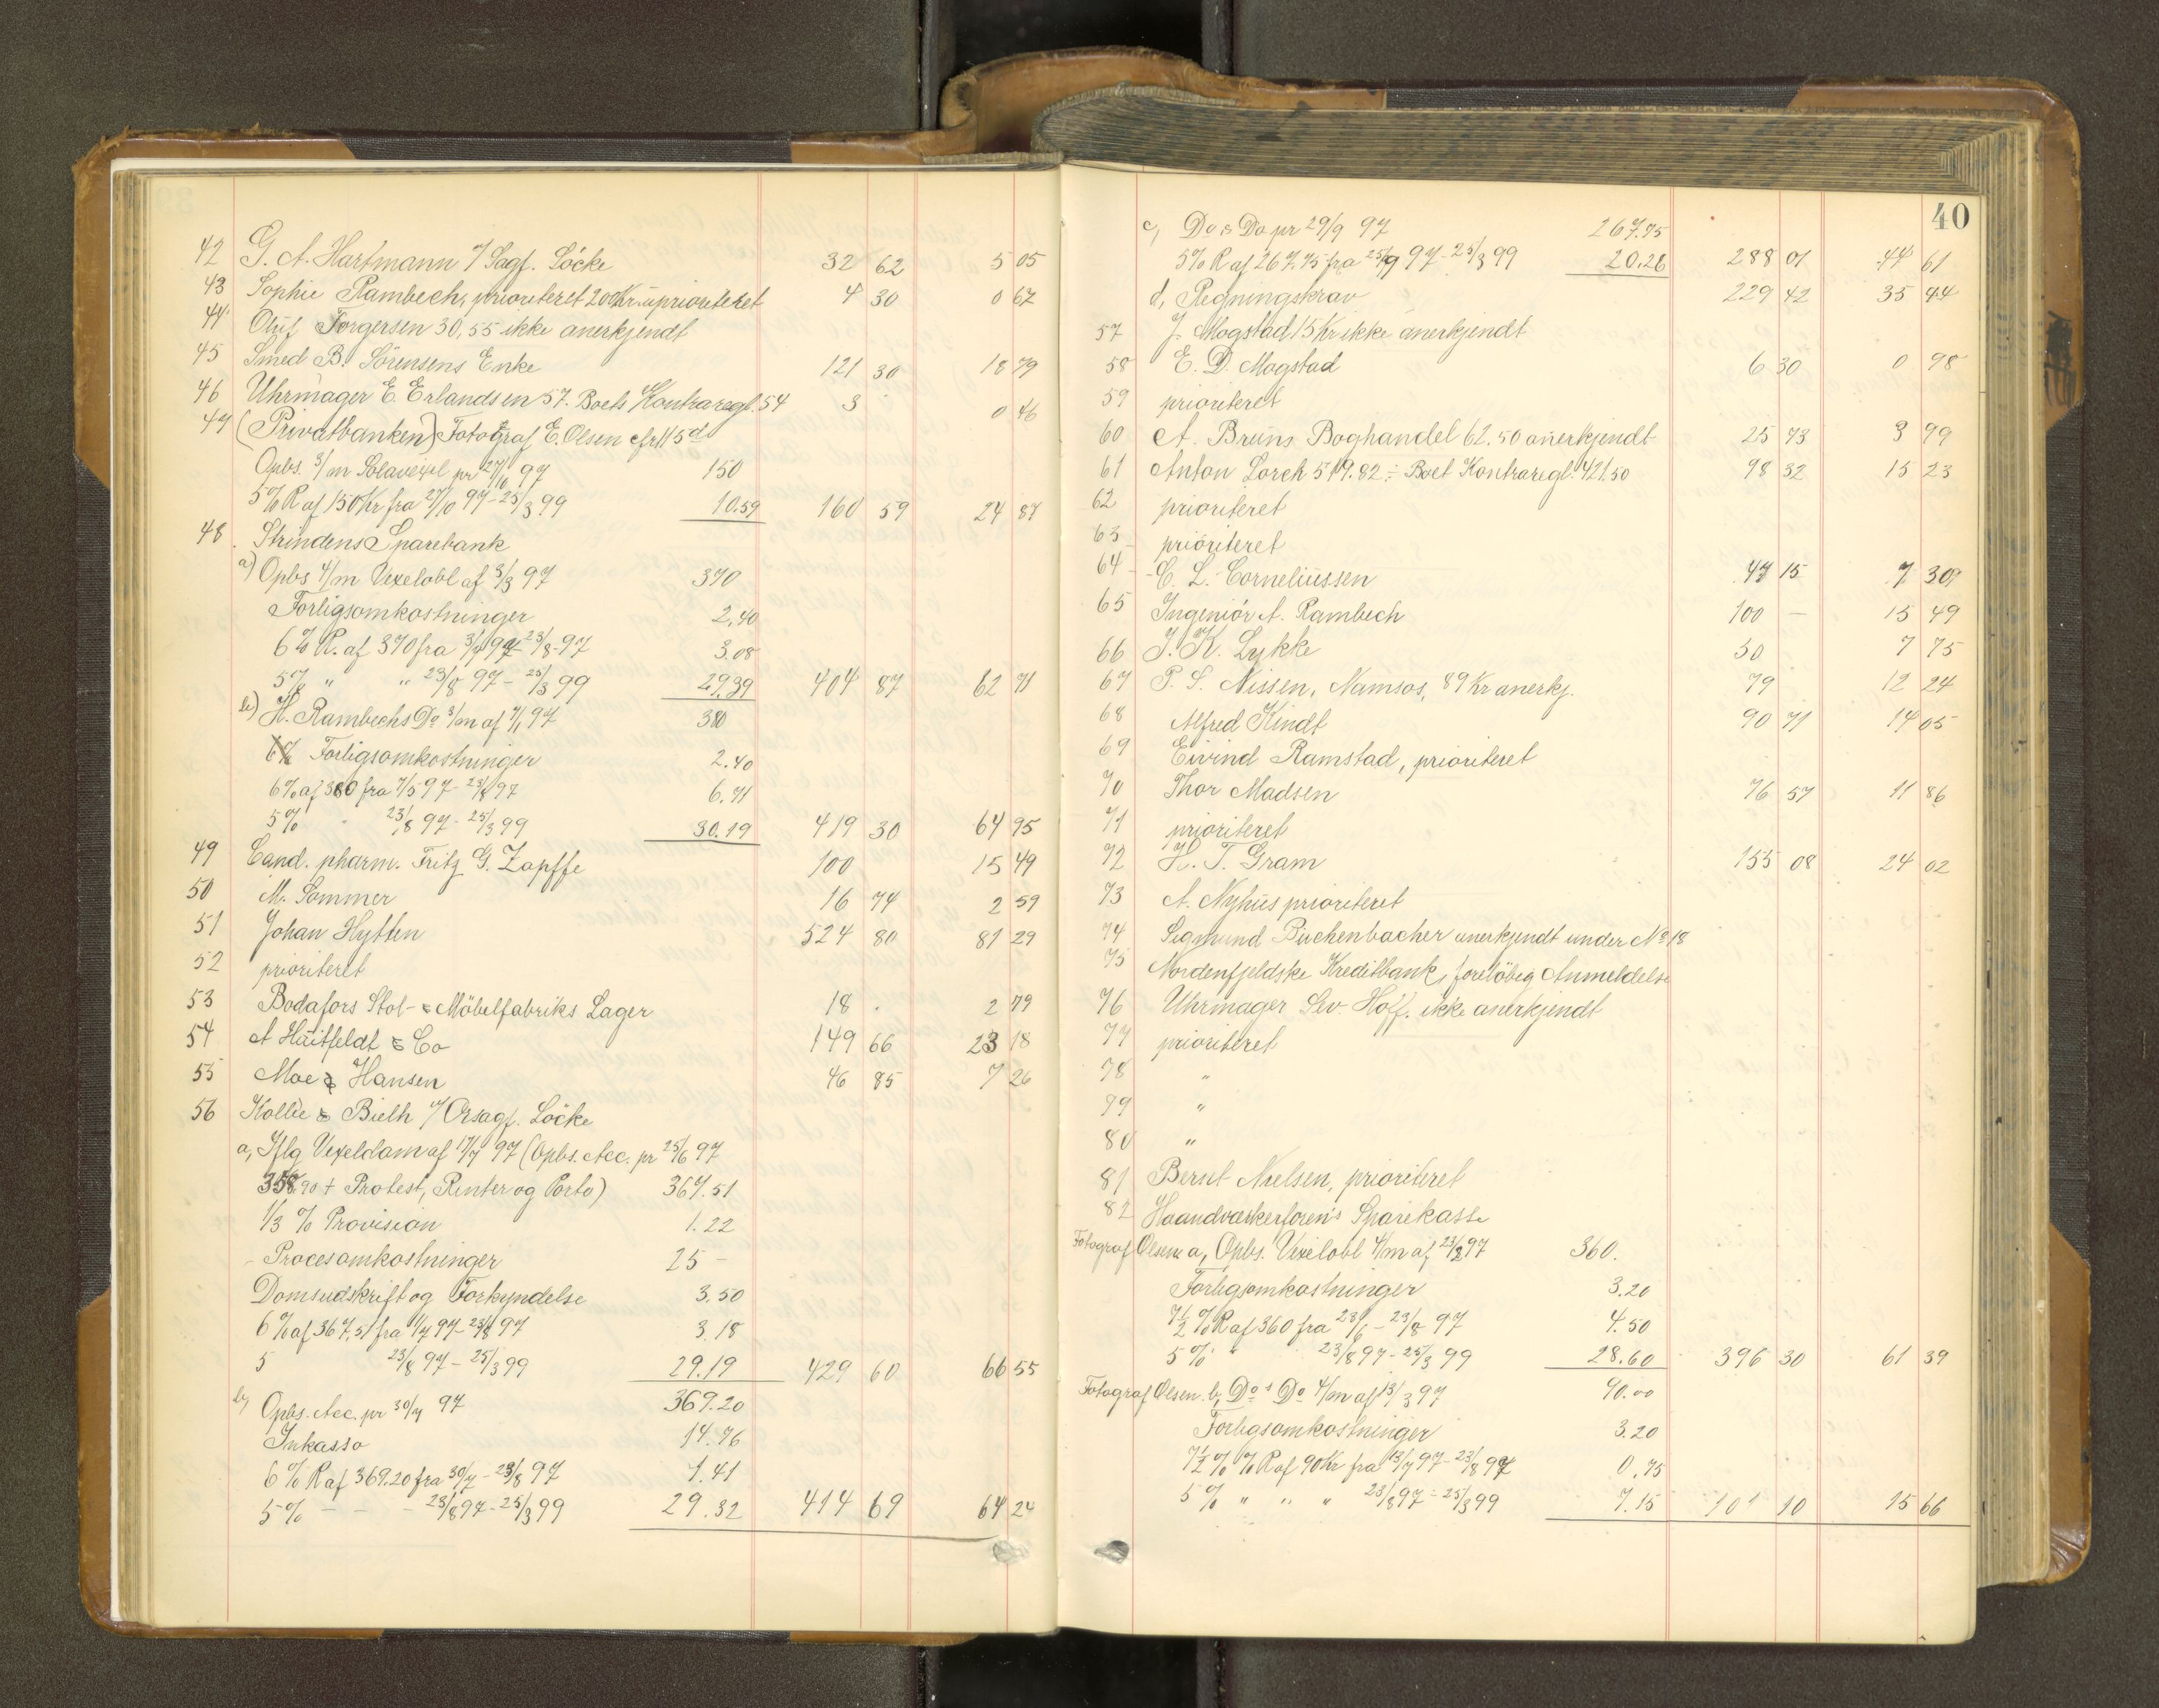 42 G. A. Hartmann v/ Sagf. Löcke 32 62 5 05
43 Sophie Rambech, prioriteret 200 Kr. uprioriteret 4 30 0 67
44 Oluf Torgersen 30,55 ikke anerkjendt
45 Smed B. Sörensens Enke 121 30 18 79
46 Uhrmager E. Erlandsen 57. Boets Kontraregl. 54 3 0 46
47 (Privatbanken) Fotograf E. Olsen cfr 115 d
Opbs. 3/m Solavexel pr 27/10 97 150
5% R af 150 Kr fra 27/10 97 - 25/3 99 10.59 160 59 24 87
48 Strindens Sparebank
a) Opbs 4/m Vexelobl af 3/3 97 370
Forligsomkostninger 2.40
6% R. af 370 fra 3/7 97 - 23/8 97 3.08
5% " " 23/8 97 - 25/3 99 29.39 404 87 62 71
b) H. Rambechs Do 3/m af 7/1 97 380
Forligsomkostninger 2.40
6% af 380 fra 7/5 97 - 23/8 97 6.71
5% 23/8 97 - 25/3 99 30.19 419 30 64 95
49 Cand. pharm. Fritz G. Zapffe 100 15 49
50 M. Sommer 16 74 2 59
51 Johan Hytten 524 80 81 29
52 prioriteret
53 Bodafors Stol- & Möbelfabriks Lager 18 . 2 79
54 A Huitfeldt & Co 149 66 23 18
55 Moe & Hansen 46 85 7 26
56 Kollie & Bieth v/ Orsagf. Löcke
a, Iflg Vexeldom af 17/7 97 (Opbs. Acc. pr 25/6 97
358.90 + Protest, Renter og Porto) 367.51
1/3 % Provision 1.22
- Procesomkostninger 25 -
Domsudskrift og Forkyndelse 3.50
6% af 367,51 fra 1/7 97 - 23/8 97 3.18
5 23/8 97 - 25/3 99 29.19 429 60 66 55
b, Opbs. Acc. pr 30/7 97 369.20
Inkasso 14.76
6% R af 369.20 fra 30/7 - 23/8 97 1.41
5% - - - 23/8 97 - 25/3 99 29.32 414 69 64 24
40
c, Do & Do pr 29/9 97 267.75
5% R af 267.75 fra 25/9 97 - 25/3 99 20.26 288 01 44 61
d, Regningskrav 229 42 35 44
57 J. Mogstad 15 Kr ikke anerkjendt
58 E. D. Mogstad 6 30 0 98
59 prioriteret
60 A. Bruns Boghandel 62.50 anerkjendt 25 73 3 99
61 Anton Lorck 519.82 ÷ Boet Kontraregl. 421.50 98 32 15 23
62 prioriteret
63 prioriteret
64 C. L. Corneliussen 47 15 7 30
65 Ingeniör A. Rambech 100 — 15 49
66 J. K. Lykke 50 7 75
67 P. S. Nissen, Namsos, 89 Kr anerkj. 79 12 24
68 Alfred Kindt 90 71 14 05
69 Eivind Ramstad, prioriteret
70 Thor Madsen 76 57 11 86
71 prioriteret
72 H. T. Gram 155 08 24 02
73 A. Nyhus prioriteret
74 Sigmund Püchenbacher anerkjendt under No 18
75 Nordenfjeldske Kreditbank, forelöbig Anmeldelse
76 Uhrmager Sev. Hoff. ikke anerkjendt
77 prioriteret
78 "
79 "
80 "
81 Bernt Nielsen, prioriteret
82 Haandværkerforen's Sparekasse
Fotograf Olsen a, Opbs. Vexelobl 4/m af 23/2 97 360.
Forligsomkostninger 3.20
7 1/2 % R af 360 fra 23/6 - 23/8 97 4.50
5% " 23/8 97 - 25/3 99 28.60 396 30 61 39
Fotograf Olsen b, Do s Do 4/m af 13/3 97 90.00
Forligsomkostninger 3.20
7 1/2 % % R af 90 Kr fra 13/7 97 - 23/8 97 0.75
5% " " " 23/8 97 - 25/3 99 7.15 101 10 15 66